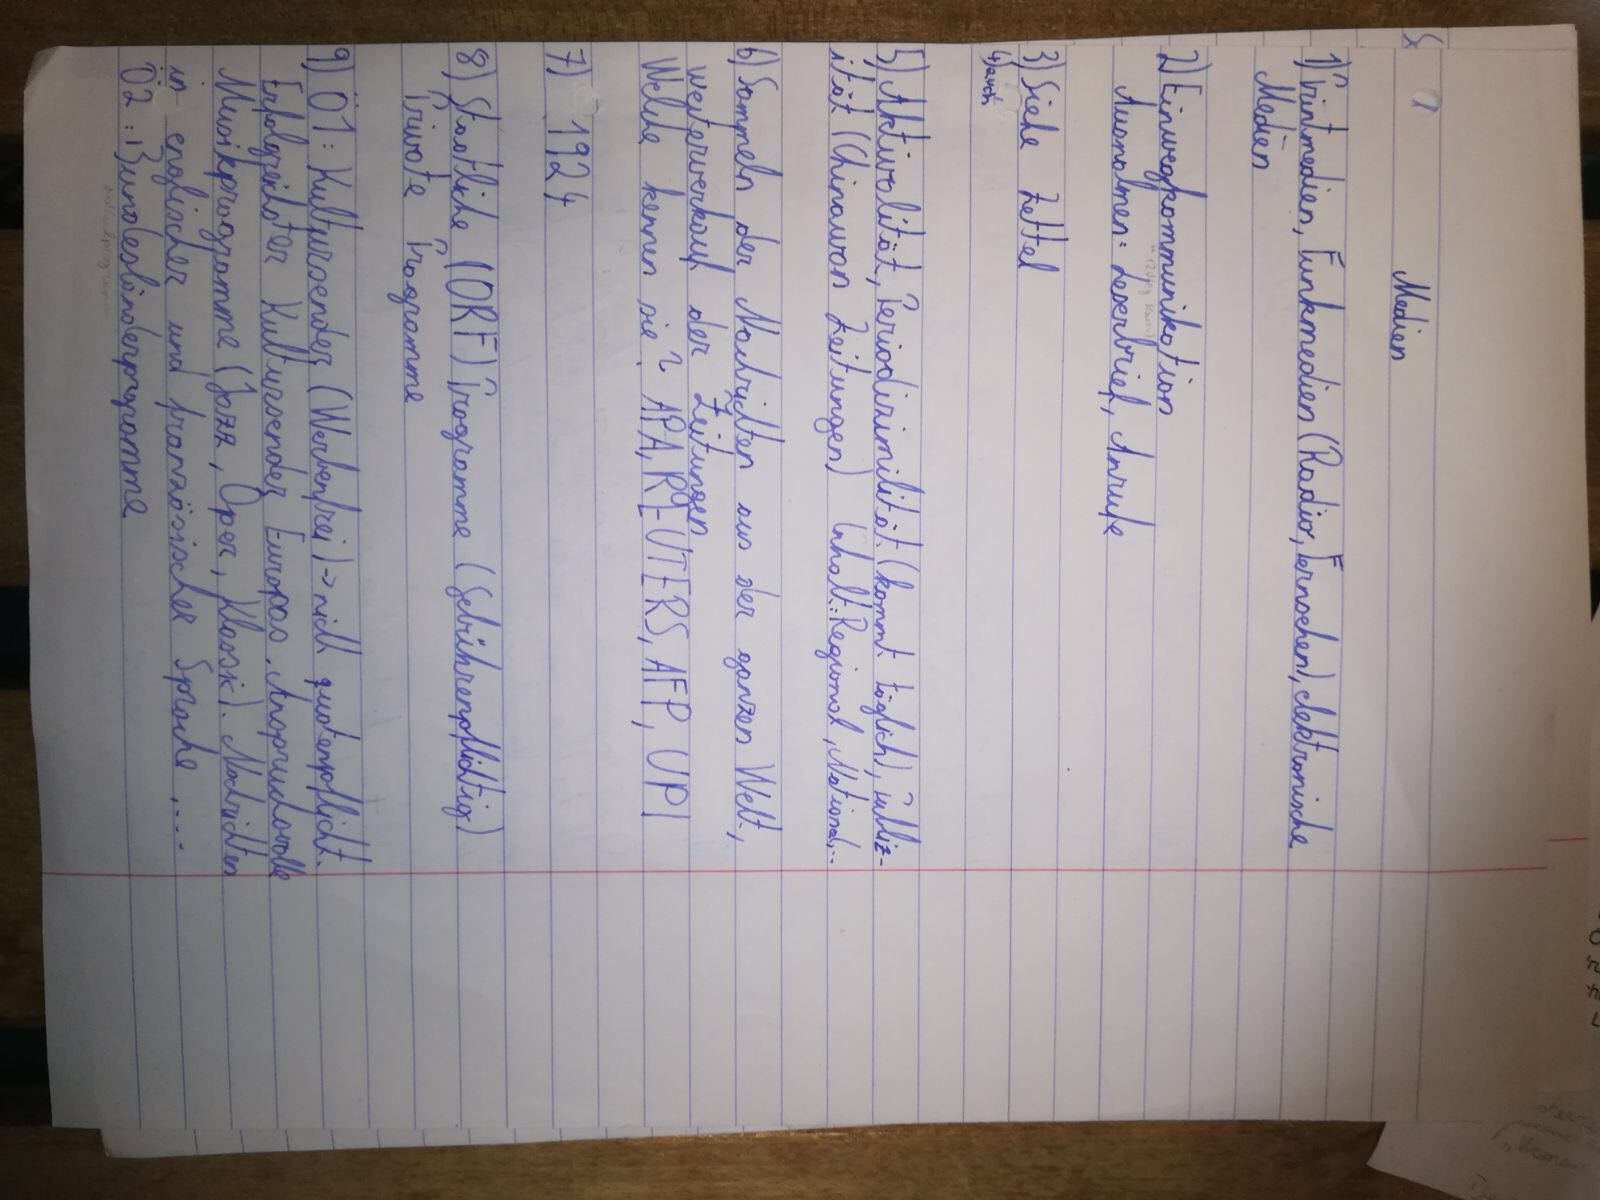 Medien
1) Printmedien, Funkmedien (Radio, Fernsehen), elektronische
Medien
2) Einwegkommunikation
Ausnahmen: Leserbrief, Anrufe
3) Siehe Zettel
4) auch
5) Aktivalität, Periodizimilität (kommt täglich), Publiz-
ität (Chinawan Zeitungen) Inhalt: Regional, National,..
6) Sammeln der Nachrichten aus der ganzen Welt,
weiterverkauf der Zeitungen
Welche kennen sie? APA, REUTERS, AFP, UPI
7) 1924
8) Staatliche (ORF) Programme (Gebührenpflichtig)
Private Programme
9) Ö1: Kultursender (Werbenfrei) → nicht quotenpflicht.
Erfolgreichster Kultursender Europas. Anspruchsvolle
Musikprogramme (Jazz, Oper, Klassik). Nachrichten
in englischer und französischer Sprache, ....
Ö2: Bundesländerprogramme